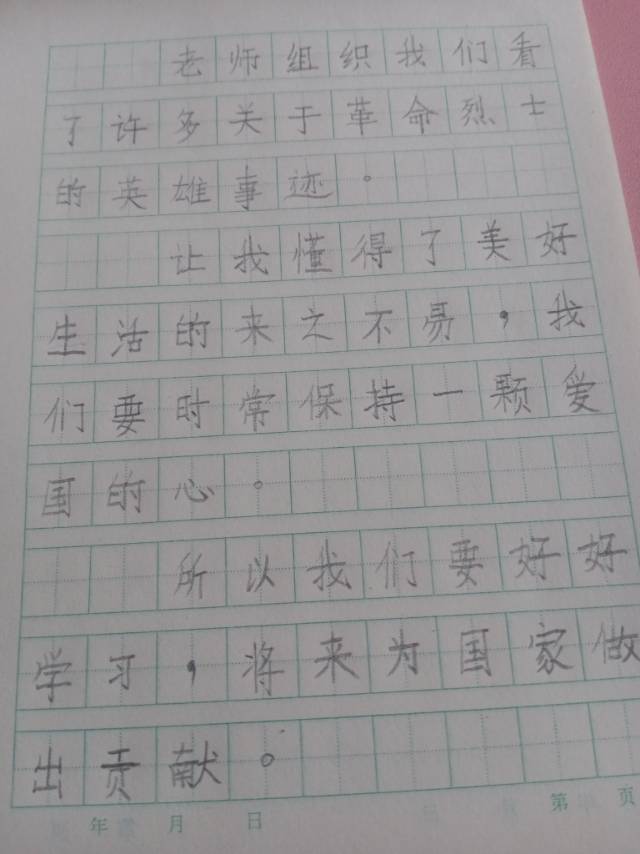 老师组织我们看
了许多关于革命烈士
的英雄事迹。
让我懂得了美好
生活的来之不易，我
们要时常保持一颗爱
国的心。
所以我们要好好
学习，将来为国家做
出贡献。
年 月 日 第 页